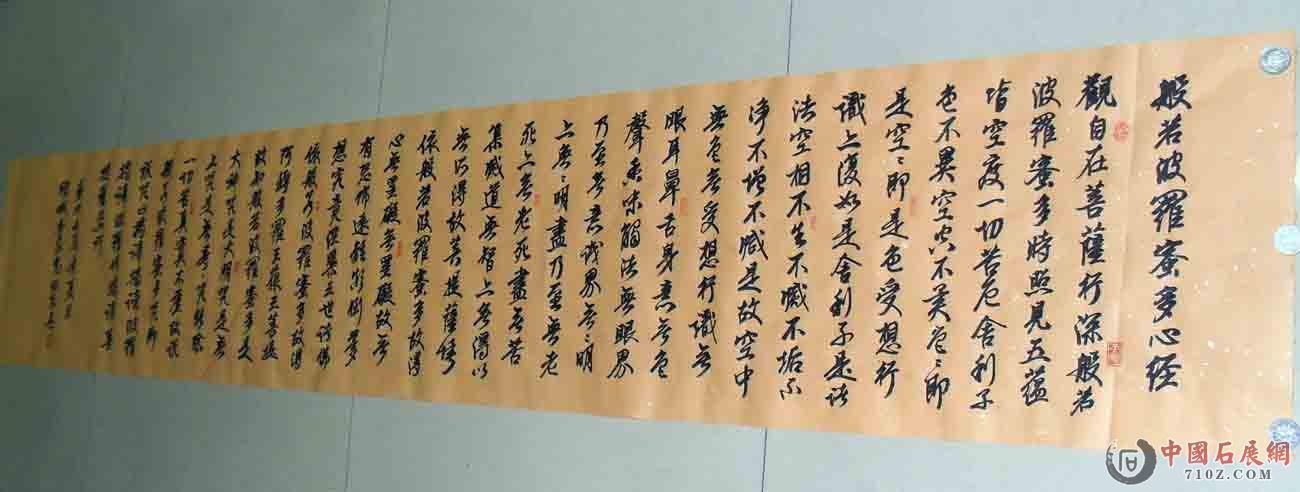 般若波羅蜜多心经
觀自在菩薩行深般若
波羅蜜多時照見五蕴
皆空度一切苦厄舍利子
色不異空空不異色〻即
是空〻即是色受想行
識亦復如是舍利子是诸
法空相不生不滅不垢不
净不增不减是故空中
無色無受想行識無
眼耳鼻舌身意無色
聲香味觸法無眼界
乃至無意識界無〻明
亦無〻明盡乃至無老
死亦無老死盡無苦
集滅道無智亦無得以
無所得故菩提薩埵
依般若波羅蜜多故得
心無罣礙無罣礙故無
有恐怖遠離顛倒夢
想究竟涅槃三世諸佛
依般若波羅蜜多故得
阿耨多羅三藐三菩提
故知般若波羅蜜多是
大神咒是大明咒是無
上咒是無等〻咒能除
一切苦真實不虛故說
般若波羅蜜多咒即
說咒曰揭諦揭諦波羅
揭諦波羅僧揭諦菩
提薩婆訶
中國石展網
71OZ.COM